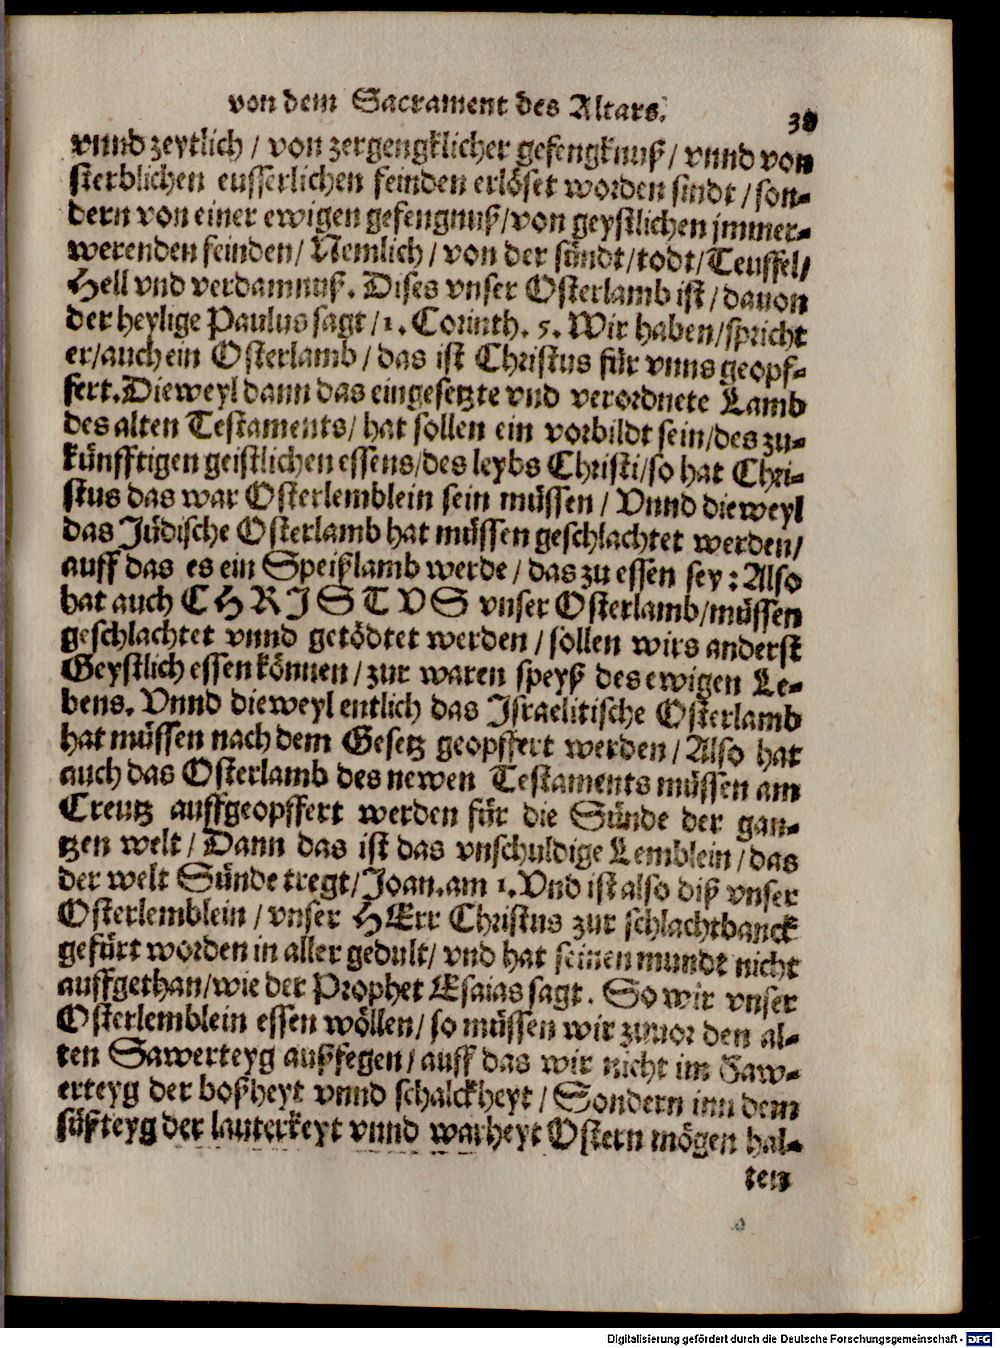 von dem Sacrament des Altars. 38
vnnd zeytlich / von zergengklicher gefengknuß / vnnd von
sterblichen eusserlichen feinden erlöset worden sindt / son-
dern von einer ewigen gefengnuß/von geystlichen jmmer-
werenden feinden/ Nemlich / von der sündt/todt/Teuffel/
Hell vnd verdamnuß. Dises vnser Osterlamb ist / dauon
der heylige Paulus sagt /1. Corinth. 5. Wir haben/spricht
er/auch ein Osterlamb / das ist Christus für vnns geopf-
fert. Dieweyl dann das eingesetzte vnd verordnete Lamb
des alten Testaments/ hat sollen ein vorbildt sein/des zu-
künfftigen geistlichen essens/des leybs Christi/so hat Chri-
stus das war Osterlemblein sein müssen / Vnnd dieweyl
das Jüdische Osterlamb hat müssen geschlachtet werden/
auff das es ein Speißlamb werde / das zu essen sey : Also
hat auch CHRISTVS vnser Osterlamb/müssen
geschlachtet vnnd getödtet werden / sollen wirs anderst
Geystlich essen können / zur waren speyß des ewigen Le-
bens. Vnnd dieweyl entlich das Israelitische Osterlamb
hat müssen nach dem Gesetz geopffert werden / Also hat
auch das Osterlamb des newen Testaments müssen am
Creutz auffgeopffert werden für die Sünde der gan-
tzen welt / Dann das ist das vnschuldige Lemblein / das
der welt Sünde tregt/Joan. am 1. Vnd ist also diß vnser
Osterlemblein / vnser HErr Christus zur schlachtbanck
gefürt worden in aller gedult/ vnd hat seinen mundt nicht
auffgethan/wie der Prophet Esaias sagt. So wir vnser
Osterlemblein essen wöllen/ so müssen wir zuuor den al-
ten Sawerteyg außfegen/ auff das wir nicht im Saw-
erteyg der boßheyt vnnd schalckheyt / Sondern inn dem
süßteyg der lauterkeyt vnnd warheyt Ostern mögen hal-
ten
Digitalisierung gefördert durch die Deutsche Forschungsgemeinschaft - DFG